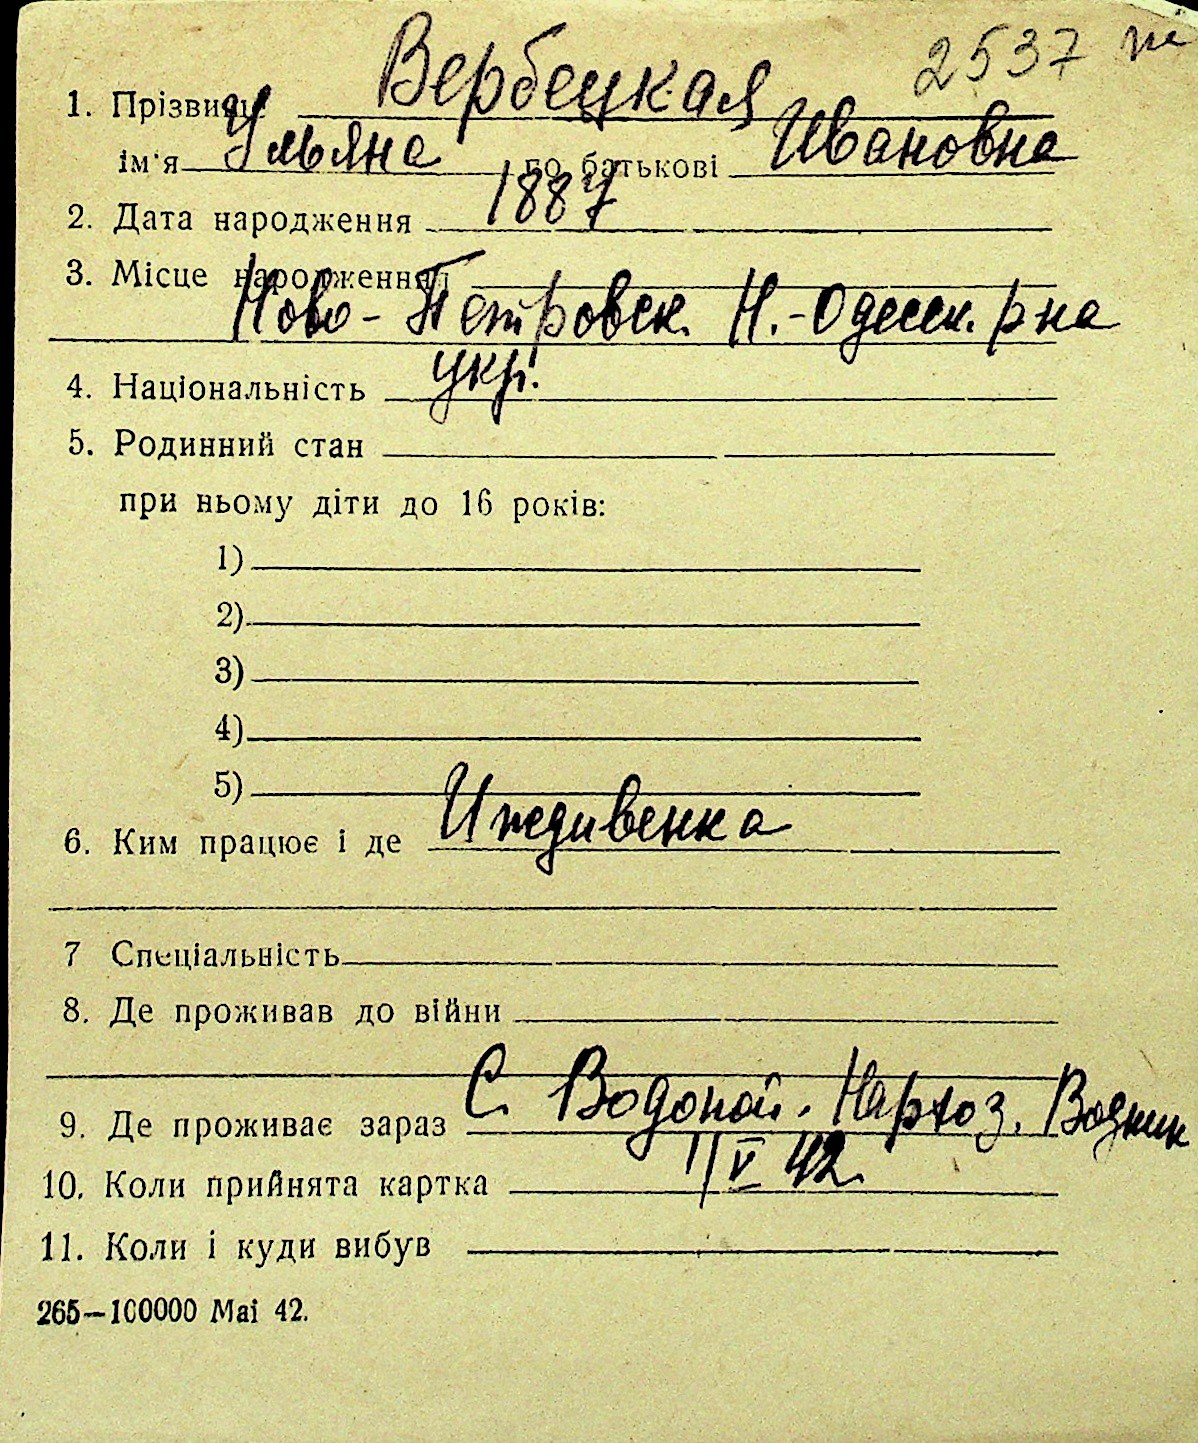 2537 ж
1. Прізвище Вербецкая
ім'я Ульяна по батькові Ивановна
2. Дата народження 1887
3. Місце народження
Ново-Петровск. Н.-Одесск. р на
4. Національність укр.
5. Родинний стан
при ньому діти до 16 років:
1)
2)
3)
4)
5)
6. Ким працює і де Иждивенка
7 Спеціальність
8. Де проживав до війни
9. Де проживає зараз С. Водопой. Нархоз. Водник
10. Коли прийнята картка 11 V 42.
11. Коли і куди вибув
265—100000 Mai 42.